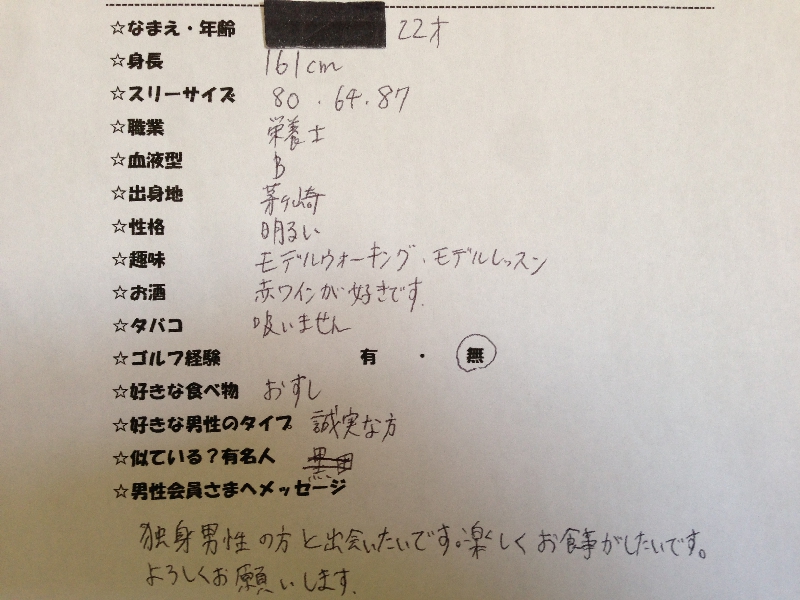 ☆なまえ・年齢 22才
☆身長 161cm
☆スリーサイズ 80.64.87
☆職業 栄養士
☆血液型 B
☆出身地 茅ヶ崎
☆性格 明るい
☆趣味 モデルウォーキング、モデルレッスン
☆お酒 赤ワインが好きです.
☆タバコ 吸いません
☆ゴルフ経験 有 ・ 無
☆好きな食べ物 おすし
☆好きな男性のタイプ 誠実な方
☆似ている?有名人
☆男性会員さまへメッセージ
独身男性の方と出会いたいです。楽しくお食事がしたいです。
よろしくお願いします.